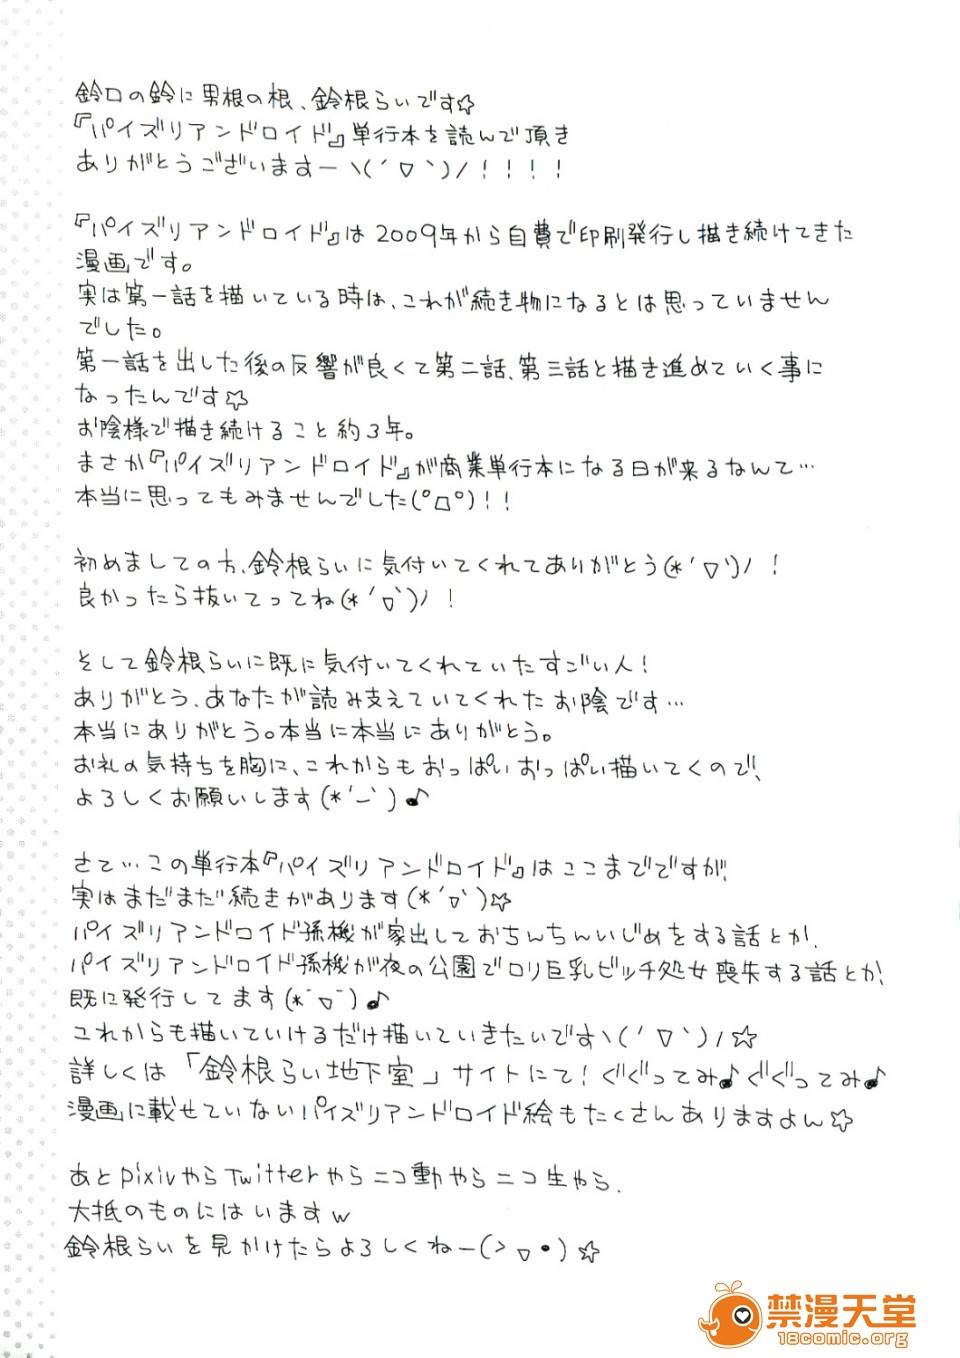 鈴口の鈴に男根の根、鈴根らいです☆
『パイズリアンドロイド』単行本を読んで頂き
ありがとうございますーヽ(´▽`)ノ！！！！
『パイズリアンドロイド』は2009年から自費で印刷発行し描き続けてきた
漫画です。
実は第一話を描いている時は、これが続き物になるとは思っていません
でした。
第一話を出した後の反響が良くて第二話、第三話と描き進めていく事に
なったんです☆
お陰様で描き続けること約3年。
まさか『パイズリアンドロイド』が商業単行本になる日が来るなんて…
本当に思ってもみませんでした(°□°)！！
初めましての方、鈴根らいに気付いてくれてありがとう(*´▽`)ノ！
良かったら抜いてってね(*´▽`)ノ！
そして鈴根らいに既に気付いてくれていたすごい人！
ありがとう、あなたが読み支えていてくれたお陰です…
本当にありがとう。本当に本当にありがとう。
お礼の気持ちを胸に、これからもおっぱいおっぱい描いてくので、
よろしくお願いします(*´-`)♪
さて…この単行本『パイズリアンドロイド』はここまでですが、
実はまだまだ続きがあります(*´▽`)☆
パイズリアンドロイド孫機が家出しておちんちんいじめをする話とか、
パイズリアンドロイド孫機が夜の公園でロリ巨乳ビッチ処女喪失する話とか、
既に発行してます(*´▽`)♪
これからも描いていけるだけ描いていきたいですヽ(´▽`)ノ☆
詳しくは「鈴根らい地下室」サイトにて！ぐぐってみ♪ぐぐってみ♪
漫画に載せていないパイズリアンドロイド絵もたくさんありますよん☆
あとpixivやらTwitterやらニコ動やらニコ生やら、
大抵のものにはいますw
鈴根らいを見かけたらよろしくねー(>▽•)☆
禁漫天堂
18comic.org